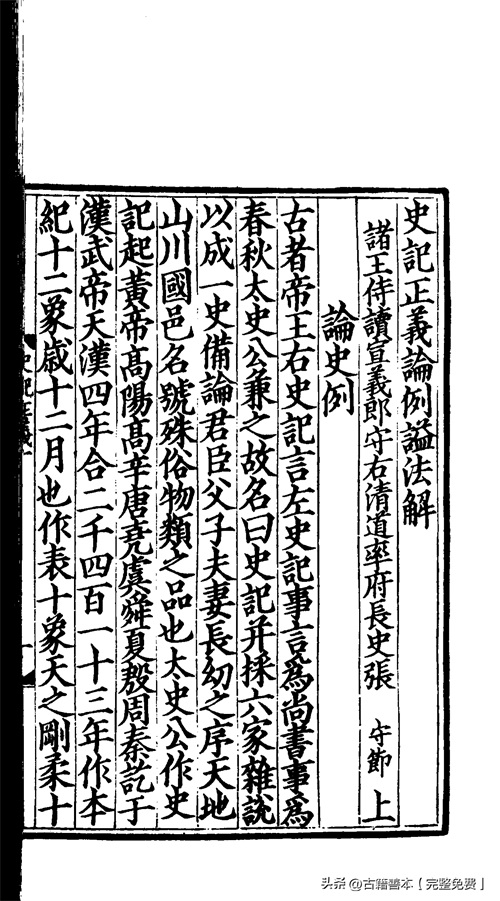 史記正義論例謚法解
諸王侍讀宣義郎守右清道率府長史張 守節 上
論史例
古者帝王右史記言左史記事言為尚書事為
春秋太史公兼之故名曰史記并採六家雜說
以成一史備論君臣父子夫妻長幼之序天地
山川國邑名號殊俗物類之品也太史公作史
記起黃帝高陽高辛唐堯虞舜夏殷周秦訖于
漢武帝天漢四年合二千四百一十三年作本
紀十二象歲十二月也作表十象天之剛柔十
头条@古籍善本【完整免费】